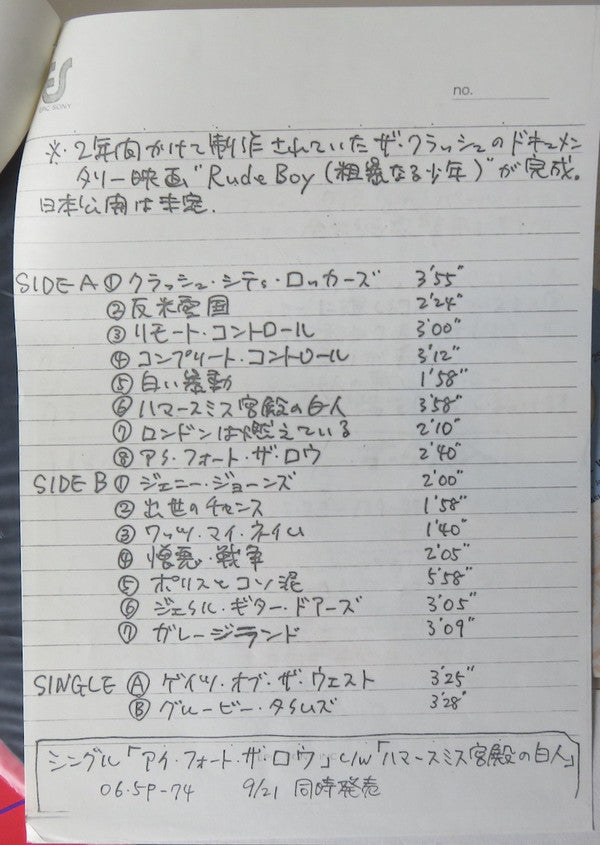 ES
EPIC SONY
no.
※ 2年間かけて制作されていたザ・クラッシュのドキュメン
タリー映画"Rude Boy (粗暴なる少年)"が完成。
日本公開は未定.
SIDE A ① クラッシュ・シティ・ロッカーズ 3'55"
② 反米愛国 2'24"
③ リモート・コントロール 3'00"
④ コンプリート・コントロール 3'12"
⑤ 白い暴動 1'58"
⑥ ハマースミス宮殿の白人 3'58"
⑦ ロンドンは燃えている 2'10"
⑧ アイ・フォート・ザ・ロウ 2'40"
SIDE B ① ジェニー・ジョーンズ 2'00"
② 出世のチャンス 1'58"
③ ワッツ・マイ・ネイム 1'40"
④ 憎悪・戦争 2'05"
⑤ ポリスとコソ泥 5'58"
⑥ ジェイル・ギター・ドアーズ 3'05"
⑦ ガレージランド 3'09"
SINGLE Ⓐ ゲイツ・オブ・ザ・ウェスト 3'25"
Ⓑ グルービー・タイムズ 3'28"
シングル「アイ・フォート・ザ・ロウ」c/w「ハマースミス宮殿の白人」
06・5P-74 9/21 同時発売